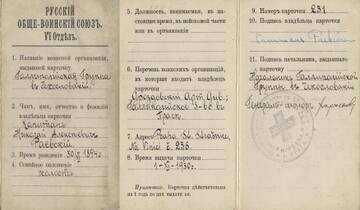 РУССКІЙ
ОБЩЕ-ВОИНСКІЙ СОЮЗЪ.
VI Отдѣлъ.
1. Названіе воинской организаціи, выдавшей карточку
Галлиполійская Группа
въ Чехословакіи
2. Чинъ, имя, отчество и фамилія владѣльца карточки
Капитанъ
Николай Алексѣевичъ
Раевскій
3. Время рожденія 30/VI 1894 г.
4. Семейное положеніе
холостъ
5. Должность, занимаемая, въ настоящее время, въ войсковой части или въ организаціи
6. Перечень воинскихъ организацій, въ которыя входитъ владѣлецъ карточки
Дроздовскій Арт. Див.;
Галлиполійское З-во въ
Прагѣ
7. Адресъ Praha XI. Strašnice,
Na Vinici č. 236.
8. Время выдачи карточки
1-XI-1930 г.
Примѣчаніе. Карточка дѣйствительна на 1 годъ со дня выдачи ея.
9. Номеръ карточки 231
10. Подпись владѣльца карточки
Раевскій
11. Подпись начальника, выдавшаго карточку
Начальникъ Галлиполійской
Группы въ Чехословакіи
Генералъ-маіоръ